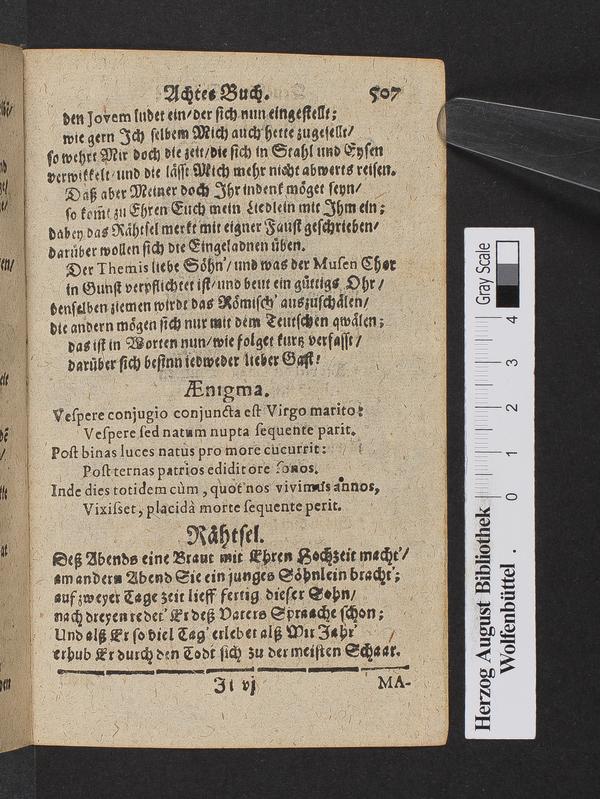 Achtes Buch. 507
den Jovem ludet ein/der sich nun eingestellt;
wie gern Ich selbem Mich auch hette zugesellt/
so wehrt Mir doch die zeit/die sich in Stahl und Eysen
verwikkelt/und die lässt Mich mehr nicht abwerts reisen.
Daß aber Meiner doch Ihr indenk möget seyn/
so kom̃t zu Ehren Euch mein Liedlein mit Ihm ein;
dabey das Rähtsel merkt mit eigner Faust geschrieben/
darüber wollen sich die Eingeladnen üben.
Der Themis liebe Söhn'/ und was der Musen Chor
in Gunst verpflichtet ist/und beut ein güttigs Ohr/
denselben ziemen wirdt das Römisch' auszuschälen/
die andern mögen sich nur mit dem Teutschen qwälen;
das ist in Worten nun/wie folget kurtz verfasst/
darüber sich besinn iedweder lieber Gast!
Ænigma.
Vespere conjugio conjuncta est Virgo marito:
Vespere sed natum nupta sequente parit.
Post binas luces natus pro more cucurrit:
Post ternas patrios edidit ore sonos.
Inde dies totidem cùm, quot nos vivimus annos,
Vixisset, placidâ morte sequente perit.
Rähtsel.
Deß Abends eine Braut mit Ehren Hochzeit macht'/
am andern Abend Sie ein junges Söhnlein bracht';
auf zweyer Tage zeit lieff fertig dieser Sohn/
nach dreyen redet' Er deß Vaters Spraache schon;
Und alß Er so viel Tag' erlebet alß Wir Jahr'
erhub Er durch den Todt sich zu der meisten Schaar.
Ii vj MA-
Gray Scale
0 1 2 3 4
Herzog August Bibliothek
Wolfenbüttel .